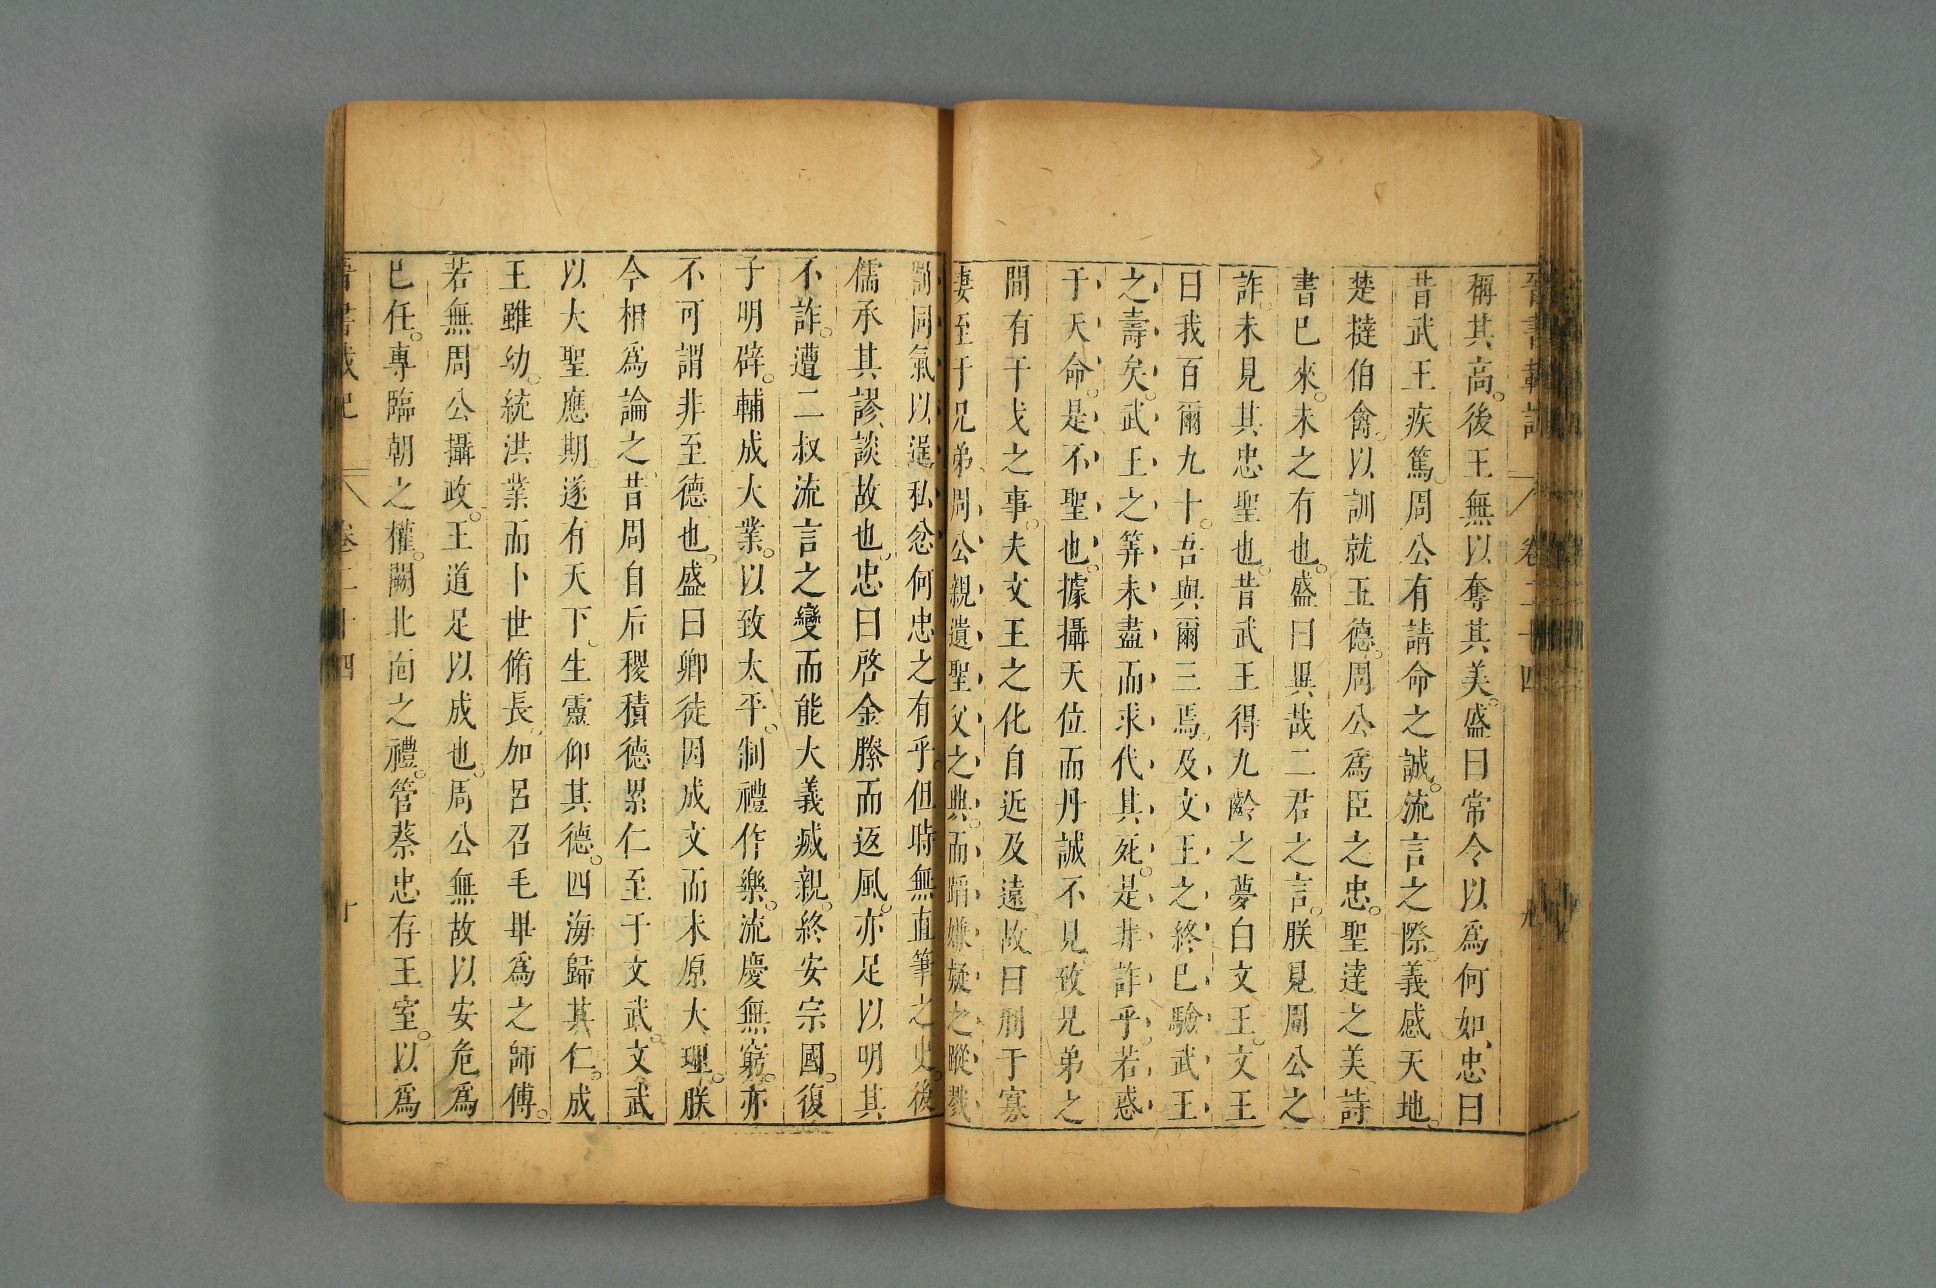 晉書載記 卷二十四 九
稱其高。後王無以奪其美。盛曰常令以爲何如、忠曰
昔武王疾篤。周公有請命之誠。流言之際。義感天地。
楚撻伯禽。以訓就王德。周公爲臣之忠。聖達之美。詩
書已來。未之有也。盛曰異哉二君之言。朕見周公之
詐。未見其忠聖也。昔武王得九齡之夢白文王。文王
曰我百爾九十。吾與爾三焉。及文王之終已驗武王
之壽矣。武王之筭未盡而求代其死。是非詐乎。若惑
于天命。是不聖也。據攝天位而丹誠不見。致兄弟之
間有干戈之事。夫文王之化自近及遠。故曰刑于寡
妻至于兄弟。周公親遺聖父之典。而蹈嫌疑之蹤。戮
罰同氣以逞私忿何忠之有乎。但時無直筆之史。後
儒承其謬談故也。忠曰啓金縢而返風。亦足以明其
不詐。遭二叔流言之變而能大義滅親。終安宗國。復
子明辟。輔成大業。以致太平。制禮作樂。流慶無窮。亦
不可謂非至德也。盛曰卿徒因成文而未原大理。朕
今相爲論之。昔周自后稷積德累仁至于文武。文武
以大聖應期。遂有天下。生靈仰其德。四海歸其仁。成
王雖幼。統洪業而卜世脩長。加呂召毛畢爲之師傅。
若無周公攝政。王道足以成也。周公無故以安危爲
已任。專臨朝之權。闕北面之禮。管蔡忠存王室。以爲
晉書載記 卷二十四 十